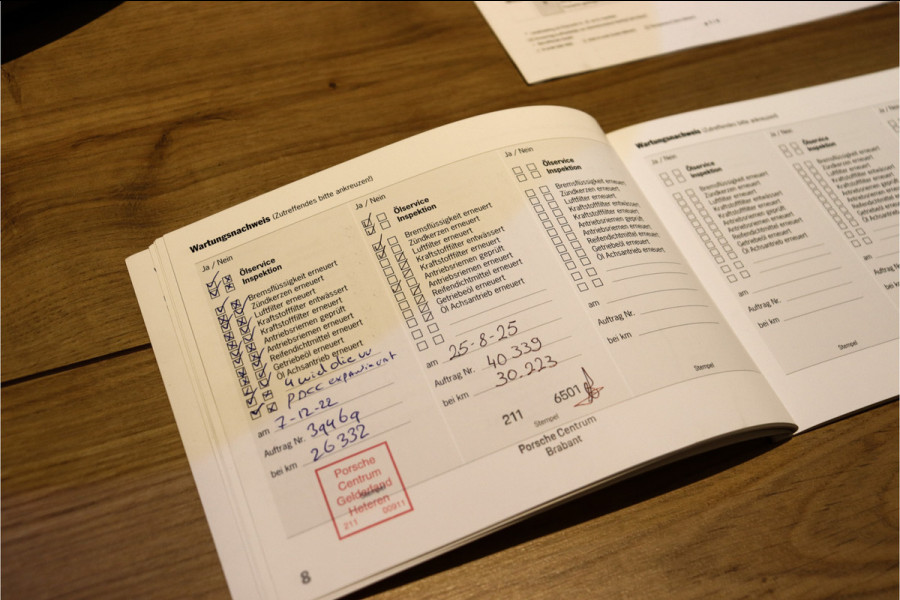 Wartungsnachweis (Zutreffendes bitte ankreuzen!)
Ja / Nein
Ölservice
Inspektion
Bremsflüssigkeit erneuert
Zündkerzen erneuert
Luftfilter erneuert
Kraftstofffilter entwässert
Kraftstofffilter erneuert
Antriebsriemen geprüft
Antriebsriemen erneuert
Reifendichtmittel erneuert
Getriebeöl erneuert
Öl Achsantrieb erneuert
4 wiel die w
PDCC
am 7-12-22
Auftrag Nr. 39469
bei km 26332
Stempel
Porsche
Centrum
Gelderland
Heteren
211 00911
8
Ja / Nein
Ölservice
Inspektion
Bremsflüssigkeit erneuert
Zündkerzen erneuert
Luftfilter erneuert
Kraftstofffilter entwässert
Kraftstofffilter erneuert
Antriebsriemen geprüft
Antriebsriemen erneuert
Reifendichtmittel erneuert
Getriebeöl erneuert
Öl Achsantrieb erneuert
am 25-8-25
Auftrag Nr. 40339
bei km 30.223
211 6501
Stempel
Porsche Centrum
Brabant
Ja / Nein
Ölservice
Inspektion
Bremsflüssigkeit erneuert
Zündkerzen erneuert
Luftfilter erneuert
Kraftstofffilter entwässert
Kraftstofffilter erneuert
Antriebsriemen geprüft
Antriebsriemen erneuert
Reifendichtmittel erneuert
Getriebeöl erneuert
Öl Achsantrieb erneuert
am
Auftrag Nr.
bei km
Stempel
Wartungsnachweis (Zutreffendes bitte ankreuzen!)
Ja / Nein
Ölservice
Inspektion
Bremsflüssigkeit erneuert
Zündkerzen erneuert
Luftfilter erneuert
Kraftstofffilter entwässert
Kraftstofffilter erneuert
Antriebsriemen geprüft
Antriebsriemen erneuert
Reifendichtmittel erneuert
Getriebeöl erneuert
Öl Achsantrieb erneuert
am
Auftrag Nr.
bei km
Stempel
Ja / Nein
Ölservice
Inspektion
am
Auftrag Nr.
bei km